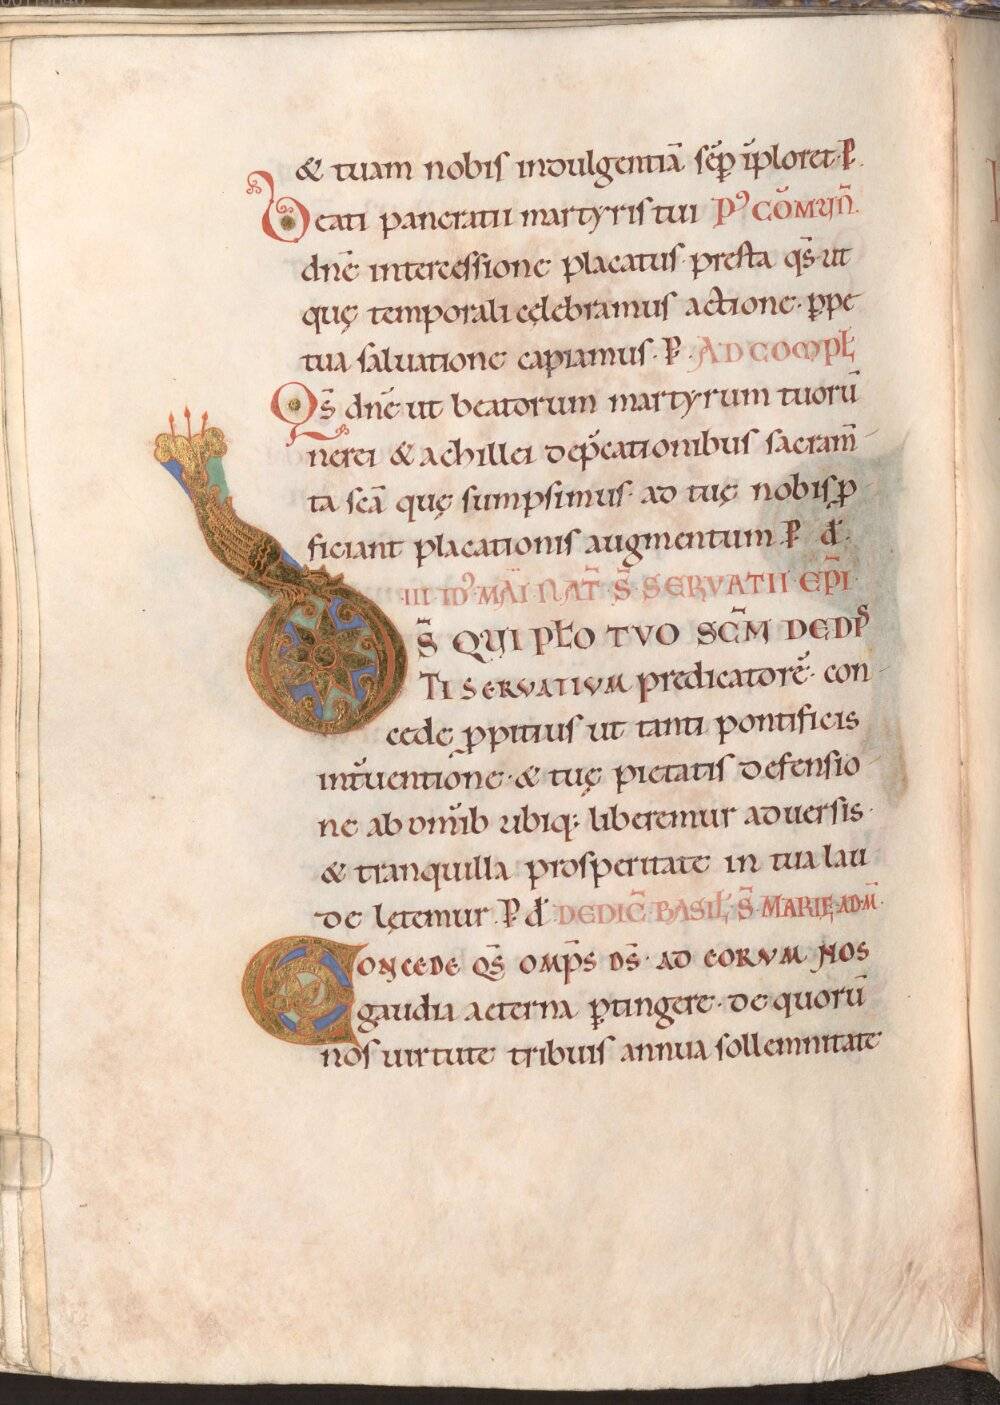 & tuam nobis indulgentiā sēp īploret · P̄
Beati pancratii martyris tui Pꝰ COM̄UN̄
dn̄e intercessione placatus · presta qs̄ · ut
quę temporali cęlebramus actione · ꝑpe
tua saluatione capiamus · P̄ · AD COMPŁ
Qs̄ dn̄e ut beatorum martyrum tuorū
nerei & achillei dep̄cationibus sacram̄
ta scā quę sumpsimus · ad tuę nobis ꝓ
ficiant placationis augmentum P̄ đ ·
III · IDꝰ MAĪ · NAT̄ · S̄ · SERUATII · EP̄I ·
D̄S QUI PŁO TUO SCM̄ DEDIS
TI SERUATIUM predicatorē · con
cede ꝓpitius ut tanti pontificis
int̄uentione · & tuę pietatis defensio
ne ab om̄ib ubiq; liberemur aduersis ·
& tranquilla prosperitate in tua lau
de lętemur · P̄ đ DEDIC̄ BASIŁ · S̄ · MARIĘ · AD · M̄ ·
CONCEDE QS̄ OMP̄S DS̄ · AD EORUM NOS
gaudia aeterna ꝑtingere · de quorū
nos uirtute tribuis annua sollemnitate